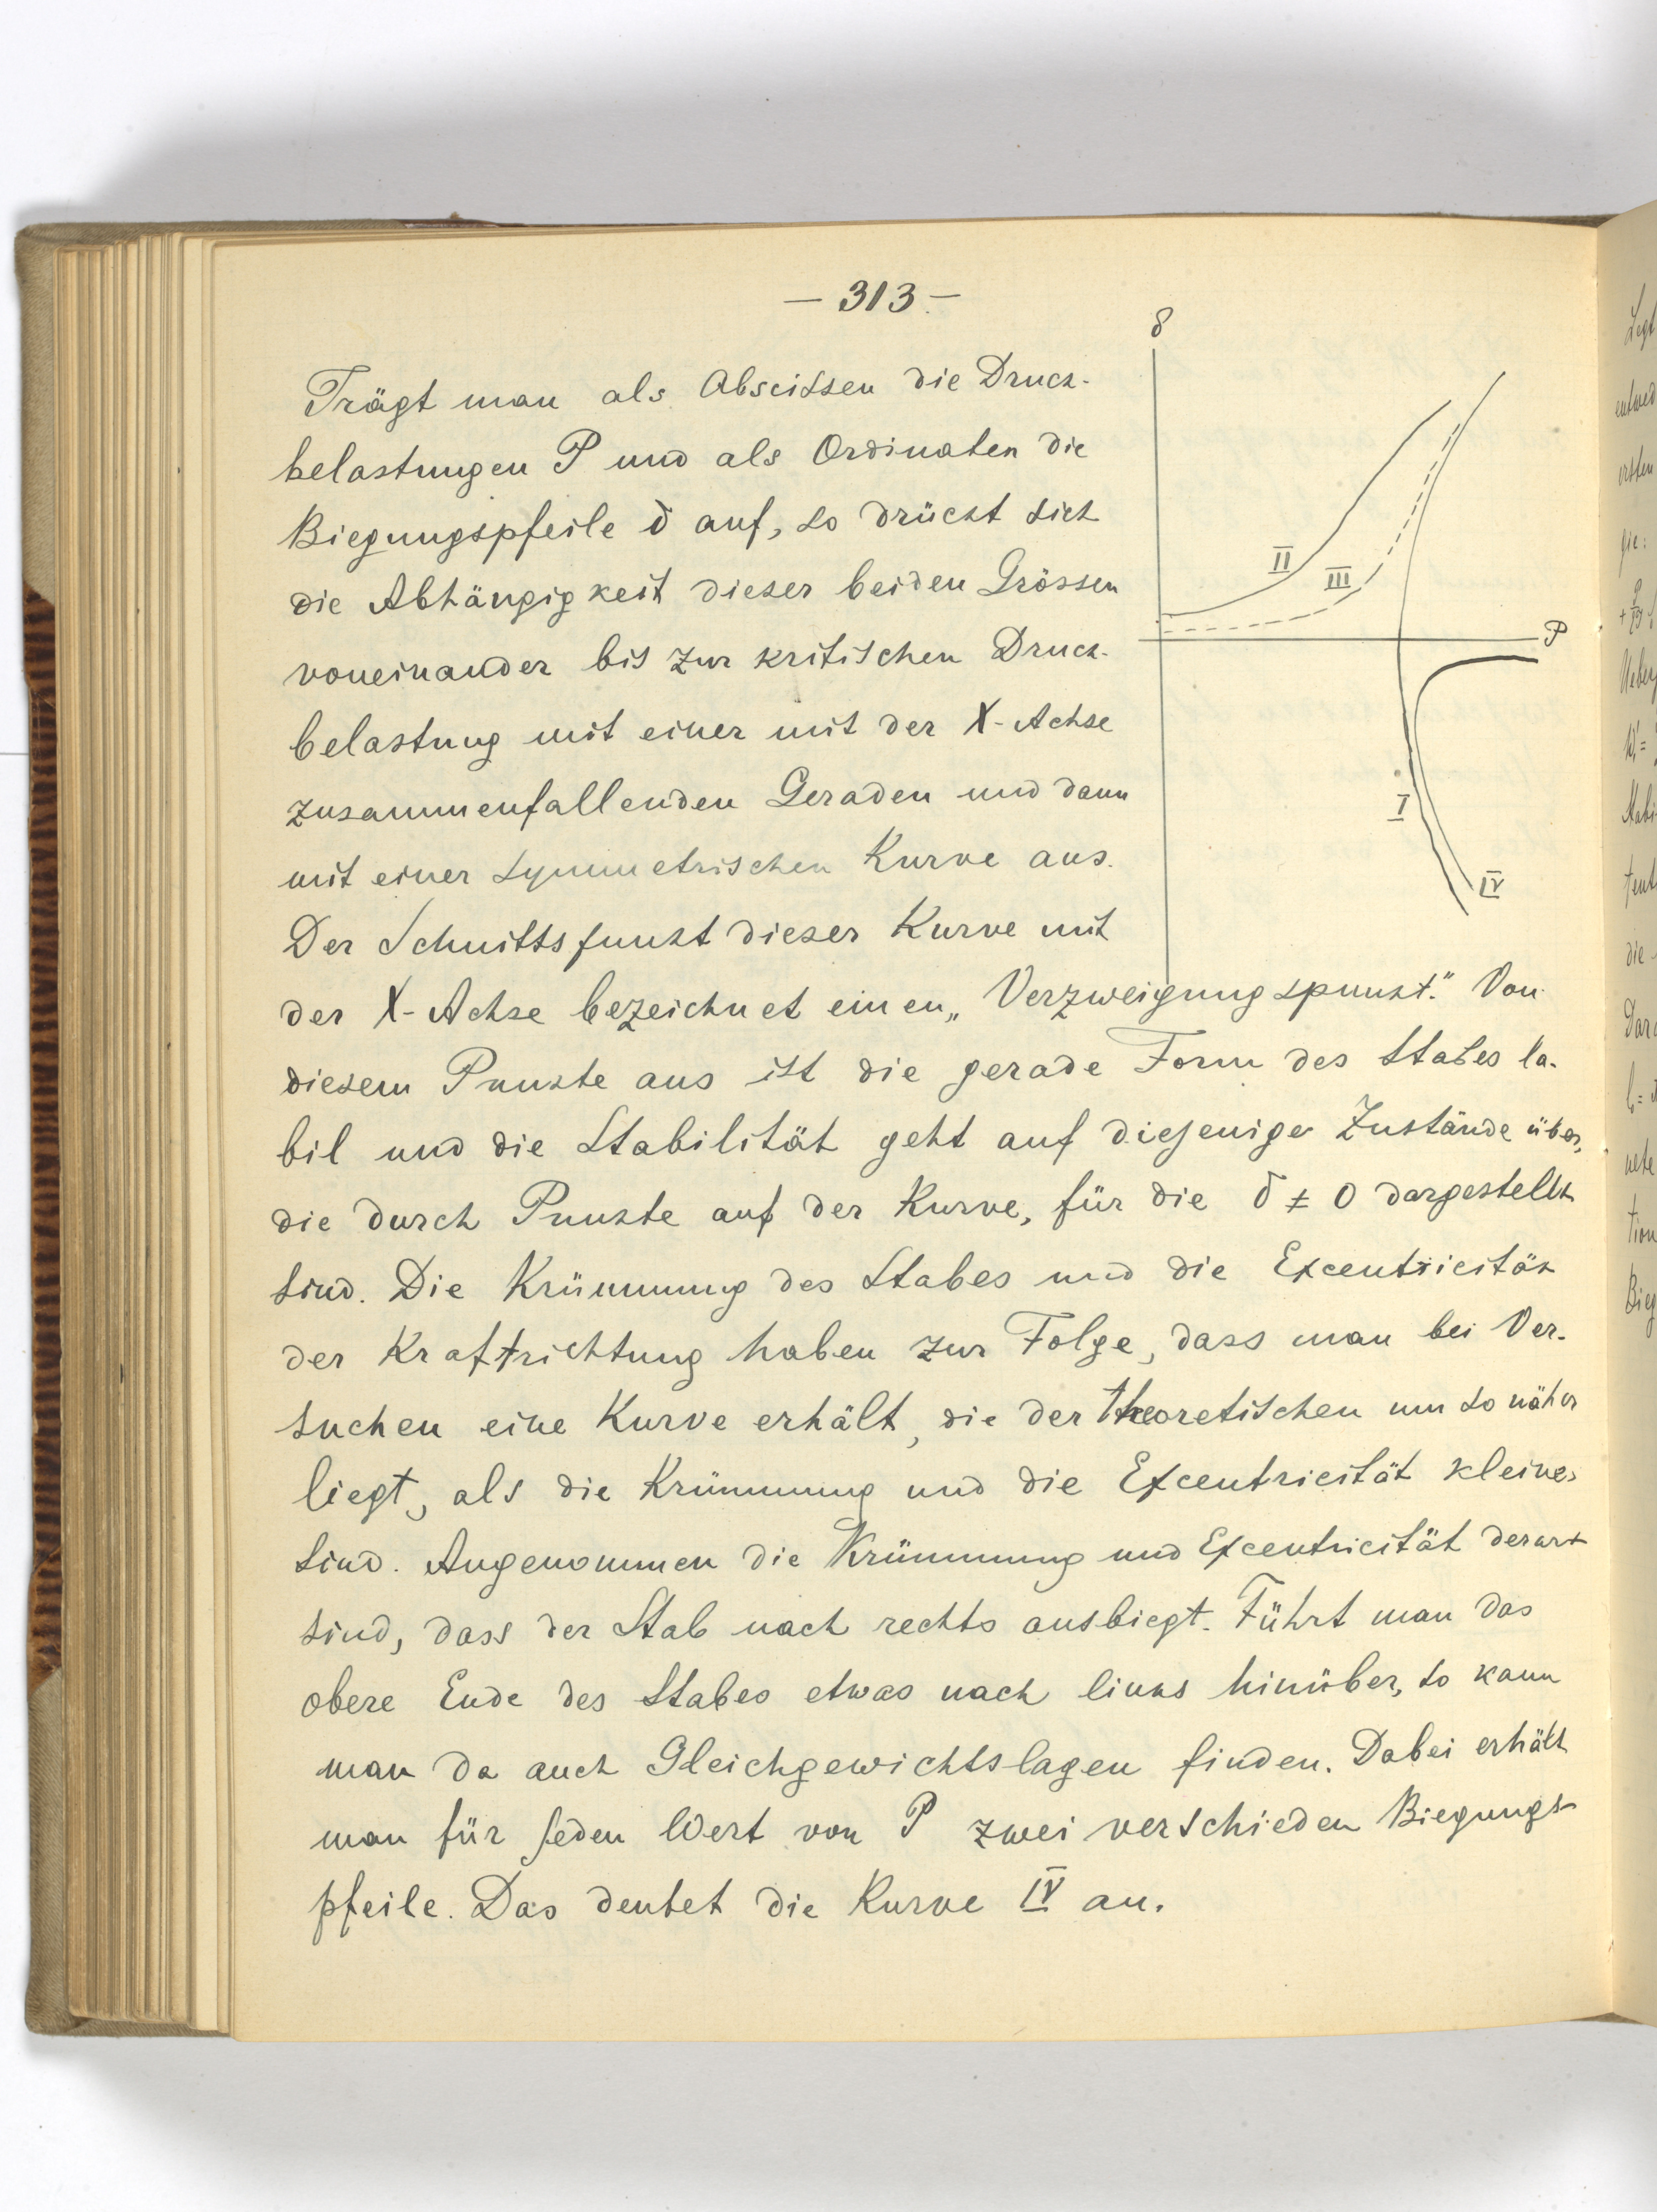 — 313 —
δ
Trägt man als Abscissen die Druck-
belastungen P und als Ordinaten die
Biegungspfeile δ auf, so drückt sich
die Abhängigkeit dieser beiden Grössen
voneinander bis zur kritischen Druck-
belastung mit einer mit der X-Achse
zusammenfallenden Geraden und dann
mit einer symmetrischen Kurve aus.
Der Schnittspunkt dieser Kurve mit
der X-Achse bezeichnet einen „Verzweigungspunkt." Von
diesem Punkte aus ist die gerade Form des Stabes la-
bil und die Stabilität geht auf diejenige Zustände über,
die durch Punkte auf der Kurve, für die δ ≠ 0 dargestellt
sind. Die Krümmung des Stabes und die Excentricität
der Kraftrichtung haben zur Folge, dass man bei Ver-
suchen eine Kurve erhält, die der theoretischen um so näher
liegt, als die Krümmung und die Excentricität kleiner
sind. Angenommen die Krümmung und Excentricität derart
sind, dass der Stab nach rechts ausbiegt. Führt man das
obere Ende des Stabes etwas nach links hinüber, so kann
man da auch Gleichgewichtslagen finden. Dabei erhält
man für jeden Wert von P zwei verschieden Biegungs-
pfeile. Das deutet die Kurve IV an.
II
III
P
I
IV